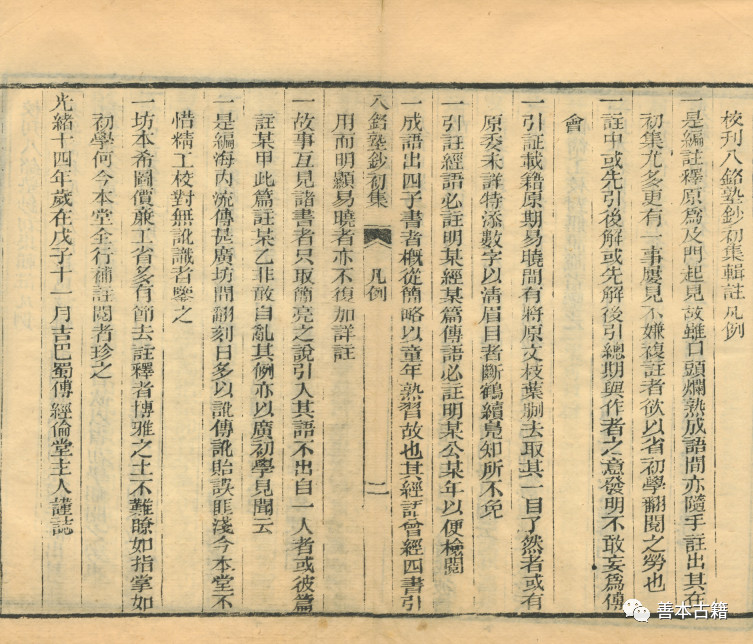 校刊八銘塾鈔初集輯註凡例
一是編註釋原爲及門起見故雖口頭爛熟成語間亦隨手註出其在
初集尤多更有一事屢見不嫌複註者欲以省初學翻閱之勞也
一註中或先引後解或先解後引總期與作者之意發明不敢妄爲傅
會
一引証載籍原期易曉間有將原文枝葉刪去取其一目了然者或有
原委未詳特添數字以清眉目者斷鶴續鳧知所不免
一引註經語必註明某經某篇傳語必註明某公某年以便檢閱
一成語出四子書者概從簡略以童年熟習故也其經語曾經四書引
八銘塾鈔初集 凡例 二
用而明顯易曉者亦不復加詳註
一故事互見諸書者只取簡亮之說引入其語不出自一人者或彼篇
註某甲此篇註某乙非敢自亂其例亦以廣初學見聞云
一是編海內流傳甚廣坊間翻刻日多以訛傳訛貽誤匪淺今本堂不
惜精工校對無訛識者鑒之
一坊本希圖價亷工省多有節去註釋者博雅之士不難瞭如指掌如
初學何今本堂全行補註閱者珍之
光緒十四年歲在戊子十一月吉巴蜀傳經倫堂主人謹誌
善本古籍